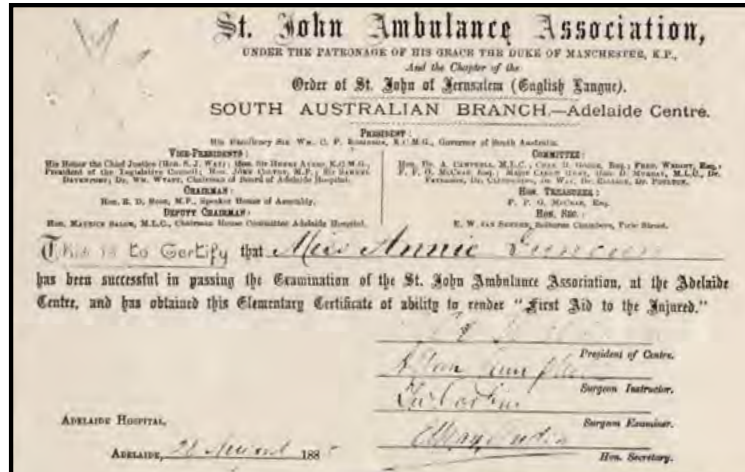 St. John Ambulance Association,
UNDER THE PATRONAGE OF HIS GRACE THE DUKE OF MANCHESTER, K.P.,
And the Chapter of the
Order of St. John of Jerusalem (English Langue).
SOUTH AUSTRALIAN BRANCH.—Adelaide Centre.
PRESIDENT:
His Excellency Sir Wm. C. F. Robinson, K.C.M.G., Governor of South Australia.
VICE-PRESIDENTS:
His Honor the Chief Justice (Hon. S. J. Way); Hon. Sir Henry Ayers, K.C.M.G.,
President of the Legislative Council; Hon. John Colton, M.P.; Sir Samuel
Davenport; Dr. Wm. Wyatt, Chairman of Board of Adelaide Hospital.
CHAIRMAN:
Hon. R. D. Ross, M.P., Speaker House of Assembly.
DEPUTY CHAIRMAN:
Hon. Maurice Salom, M.L.C., Chairman House Committee Adelaide Hospital.
COMMITTEE:
Hon. Dr. A. Campbell, M.L.C.; Chas. Esq.; Fred. Wright, Esq.;
Esq.; Major Hon. D. Murray, M.L.C., Dr.
Dr. Dr. Way, Dr. Dr. Poulton.
HON. TREASURER:
Esq.
HON. SEC.:
Chambers, Street.
This is to Certify that Miss Annie
has been successful in passing the Examination of the St. John Ambulance Association, at the Adelaide
Centre, and has obtained this Elementary Certificate of ability to render "First Aid to the Injured."
President of Centre.
Surgeon Instructor.
Surgeon Examiner.
Hon. Secretary.
ADELAIDE HOSPITAL,
ADELAIDE, 188